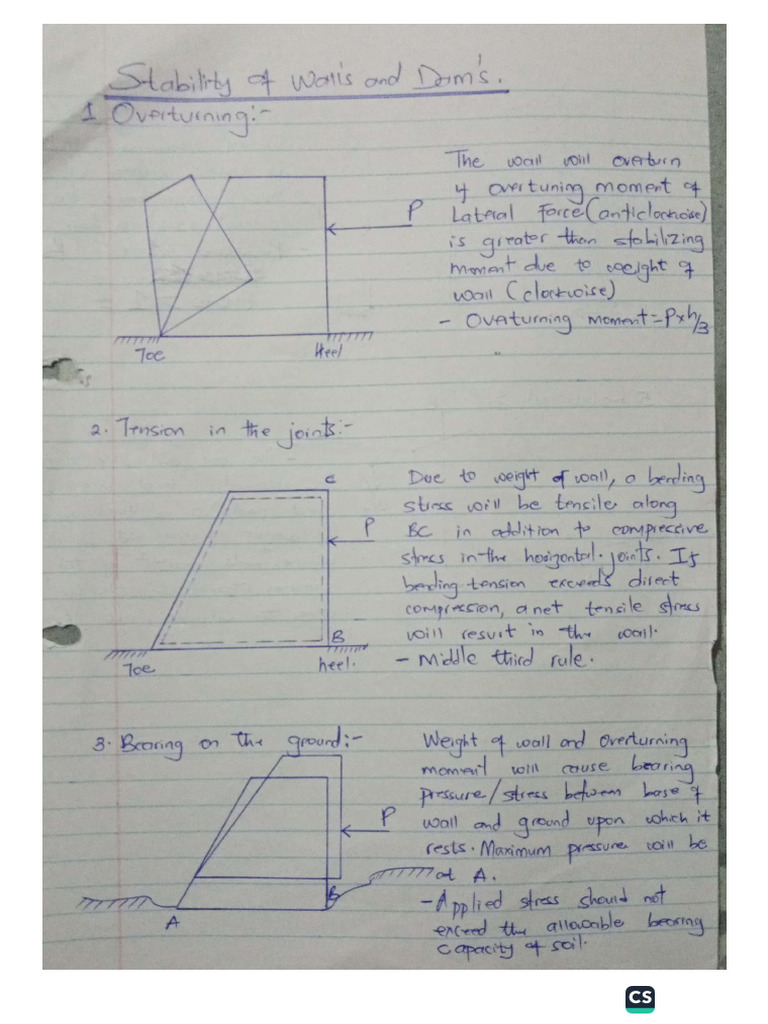 Stability of Wall's and Dam's.
1 Overturning:-
The wall will overturn
if overtuning moment of
Lateral Force (anticlockwise)
is greater than stabilizing
moment due to weight of
wall (clockwise)
- Overturning moment = P x h/3
P
Toe
Heel
2. Tension in the joints:-
Due to weight of wall, a bending
stress will be tensile along
BC in addition to compressive
stress in the horizontal joints. If
bending tension exceeds direct
compression, a net tensile stress
will result in the wall.
- Middle third rule.
C
P
B
Toe
heel.
3. Bearing on the ground:-
Weight of wall and overturning
moment will cause bearing
pressure/stress between base of
wall and ground upon which it
rests. Maximum pressure will be
at A.
- Applied stress should not
exceed the allowable bearing
capacity of soil.
P
B
A
CS